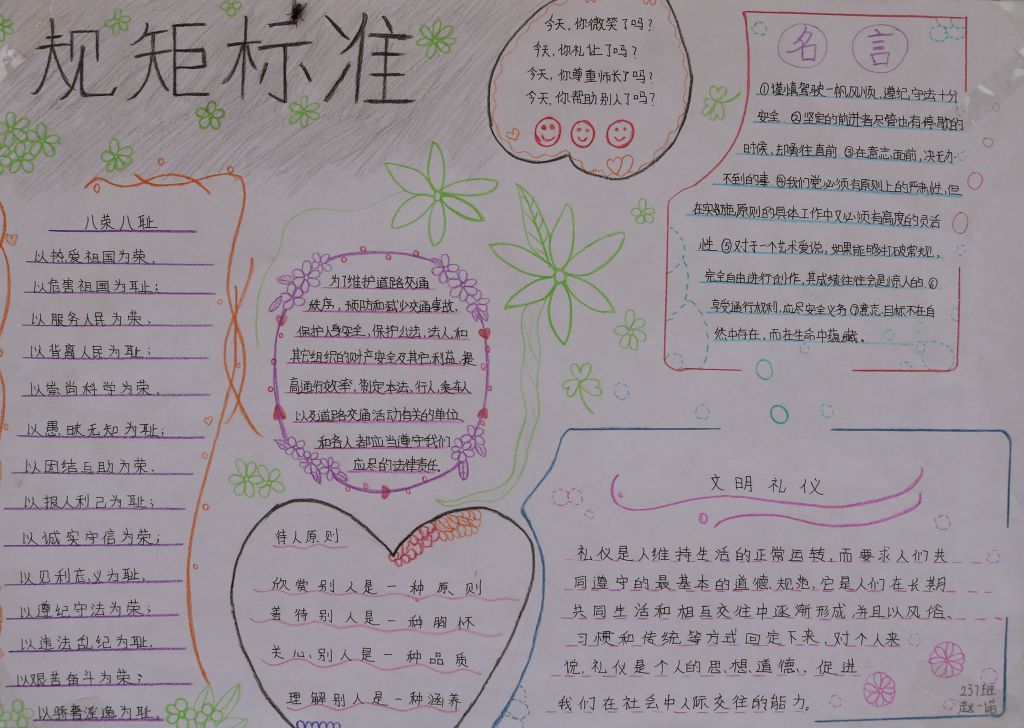 规矩标准
今天,你微笑了吗?
今天,你礼让了吗?
今天,你尊重师长了吗?
今天,你帮助别人了吗?
名言
①谨慎驾驶一帆风顺,遵纪守法十分
安全. ②坚定的前进者尽管也有停歇的
时候,却勇往直前 ③在意志面前,决无办
不到的事 ④我们党必须有原则上的严肃性,但
在实施原则的具体工作中又必须有高度的灵活
性 ⑤对于一个艺术爱说,如果能够打破常规,
完全自由进行创作,其成绩往往会是惊人的 ⑥
享受通行权利,应尽安全义务 ⑦意志目标不在自
然中存在,而在生命中蕴藏.
八荣八耻
以热爱祖国为荣,
以危害祖国为耻;
以服务人民为荣,
以背离人民为耻;
以崇尚科学为荣,
以愚昧无知为耻;
以团结互助为荣.
以损人利己为耻;
以诚实守信为荣;
以见利忘义为耻,
以遵纪守法为荣;
以违法乱纪为耻,
以艰苦奋斗为荣;
以骄奢淫逸为耻。
为了维护道路交通
秩序,预防和减少交通事故,
保护人身安全,保护公法,法人,和
其它组织的财产安全及其它利益,提
高通行效率,制定本法,行人,乘车人
以及道路交通活动有关的单位
和各人都应当遵守我们
应尽的法律责任.
待人原则
欣赏别人是一种原则
善待别人是一种胸怀
关心别人是一种品质
理解别人是一种涵养
文明礼仪
礼仪是人维持生活的正常运转,而要求人们共
同遵守的最基本的道德规范,它是人们在长期
共同生活和相互交往中逐渐形成,并且以风俗、
习惯和传统等方式固定下来,对个人来
说,礼仪是个人的思想道德.促进
我们在社会中人际交往的能力。
237班
赵一诺